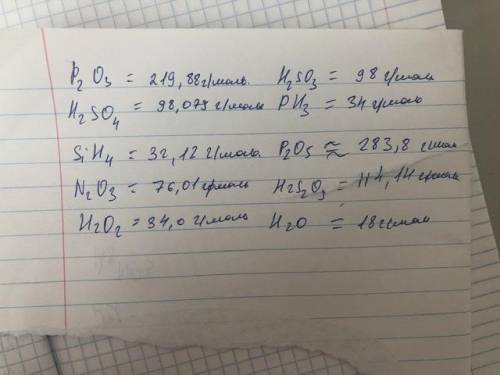 P₂O₃ = 219,88 г/моль. H₂SO₃ = 98 г/моль
H₂SO₄ = 98,079 г/моль PH₃ = 34 г/моль
SiH₄ = 32,12 г/моль. P₂O₅ ≈ 283,8 г/моль
N₂O₃ = 76,01 г/моль H₂S₂O₃ = 114,14 г/моль
H₂O₂ = 34,0 г/моль H₂O = 18 г/моль